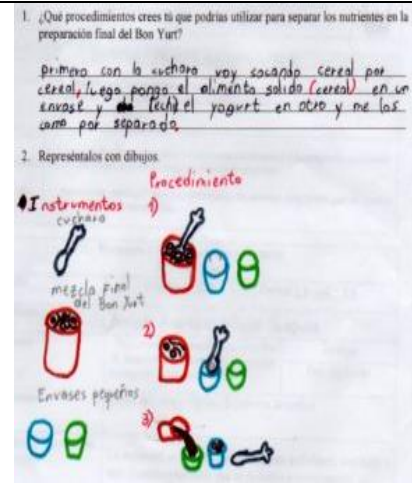 1. ¿Qué procedimientos crees tú que podrías utilizar para separar los nutrientes en la
preparación final del Bon Yurt?
primero con la cuchara voy sacando cereal por
cereal, luego pongo el alimento solido (cereal) en un
envase y el yogurt en otro y me los
como por separado.
2. Represéntalos con dibujos.
Procedimiento
Instrumentos 1)
cuchara
mezcla final
del Bon Yurt
2)
Envases pequeños
3)